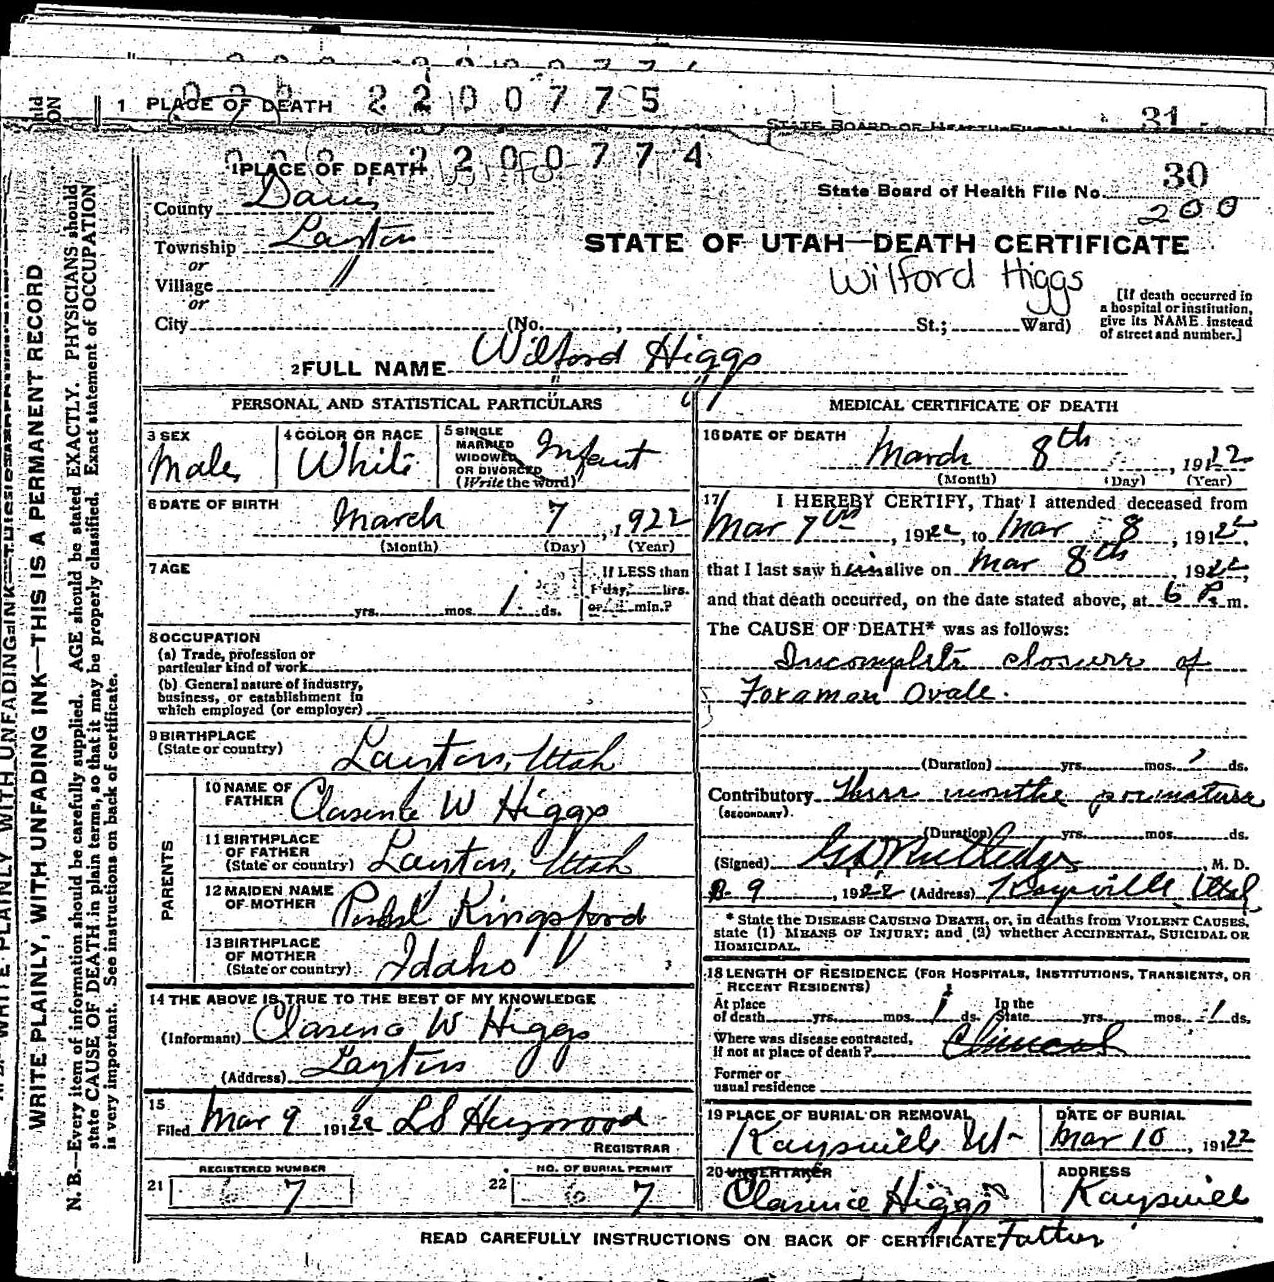 1 PLACE OF DEATH 2200775
State Board of Health File No. 31
1 PLACE OF DEATH 2200774
State Board of Health File No. 30
200
County Davis
Township Layton
or
Village
or
City (No. , St.; Ward)
STATE OF UTAH—DEATH CERTIFICATE
Wilford Higgs
[If death occurred in
a hospital or institution,
give its NAME instead
of street and number.]
2 FULL NAME Wilford Higgs
PERSONAL AND STATISTICAL PARTICULARS
3 SEX
Male
4 COLOR OR RACE
White
5 SINGLE
MARRIED
WIDOWED
OR DIVORCED
(Write the word)
Infant
6 DATE OF BIRTH
March 7, 1922
(Month) (Day) (Year)
7 AGE
yrs. mos. 1 ds.
If LESS than
1 day, hrs.
or min.?
8 OCCUPATION
(a) Trade, profession or
particular kind of work
(b) General nature of industry,
business, or establishment in
which employed (or employer)
9 BIRTHPLACE
(State or country) Layton, Utah
PARENTS
10 NAME OF
FATHER Clarence W Higgs
11 BIRTHPLACE
OF FATHER
(State or country) Layton, Utah
12 MAIDEN NAME
OF MOTHER Kingsford
13 BIRTHPLACE
OF MOTHER
(State or country) Idaho
14 THE ABOVE IS TRUE TO THE BEST OF MY KNOWLEDGE
(Informant) Clarence W Higgs
(Address) Layton
15
Filed Mar 9 1922 L S Heywood
REGISTRAR
REGISTERED NUMBER
21 7
NO. OF BURIAL PERMIT
22 7
MEDICAL CERTIFICATE OF DEATH
16 DATE OF DEATH
March 8th, 1922
(Month) (Day) (Year)
17 I HEREBY CERTIFY, That I attended deceased from
Mar 7th, 1922, to Mar 8, 1922,
that I last saw him alive on Mar 8th 1922,
and that death occurred, on the date stated above, at 6 P. m.
The CAUSE OF DEATH* was as follows:
Incomplete closure of
Foramen Ovale.
(Duration) yrs. mos. ds.
Contributory Three months premature
(SECONDARY)
(Duration) yrs. mos. ds.
(Signed) G D Rutledge, M. D.
3-9, 1922 (Address) Kaysville Utah
* State the DISEASE CAUSING DEATH, or, in deaths from VIOLENT CAUSES,
state (1) MEANS OF INJURY; and (2) whether ACCIDENTAL, SUICIDAL OR
HOMICIDAL.
18 LENGTH OF RESIDENCE (FOR HOSPITALS, INSTITUTIONS, TRANSIENTS, OR
RECENT RESIDENTS)
At place
of death yrs. mos. 1 ds.
In the
State yrs. mos. 1 ds.
Where was disease contracted,
if not at place of death?
Former or
usual residence
19 PLACE OF BURIAL OR REMOVAL
Kaysville Ut-
DATE OF BURIAL
Mar 10, 1922
20 UNDERTAKER
Clarence Higgs
ADDRESS
Kaysville
READ CAREFULLY INSTRUCTIONS ON BACK OF CERTIFICATE Father
WRITE PLAINLY, WITH UNFADING INK—THIS IS A PERMANENT RECORD
N. B.—Every item of information should be carefully supplied. AGE should be stated EXACTLY. PHYSICIANS should
state CAUSE OF DEATH in plain terms, so that it may be properly classified. Exact statement of OCCUPATION
is very important. See instructions on back of certificate.